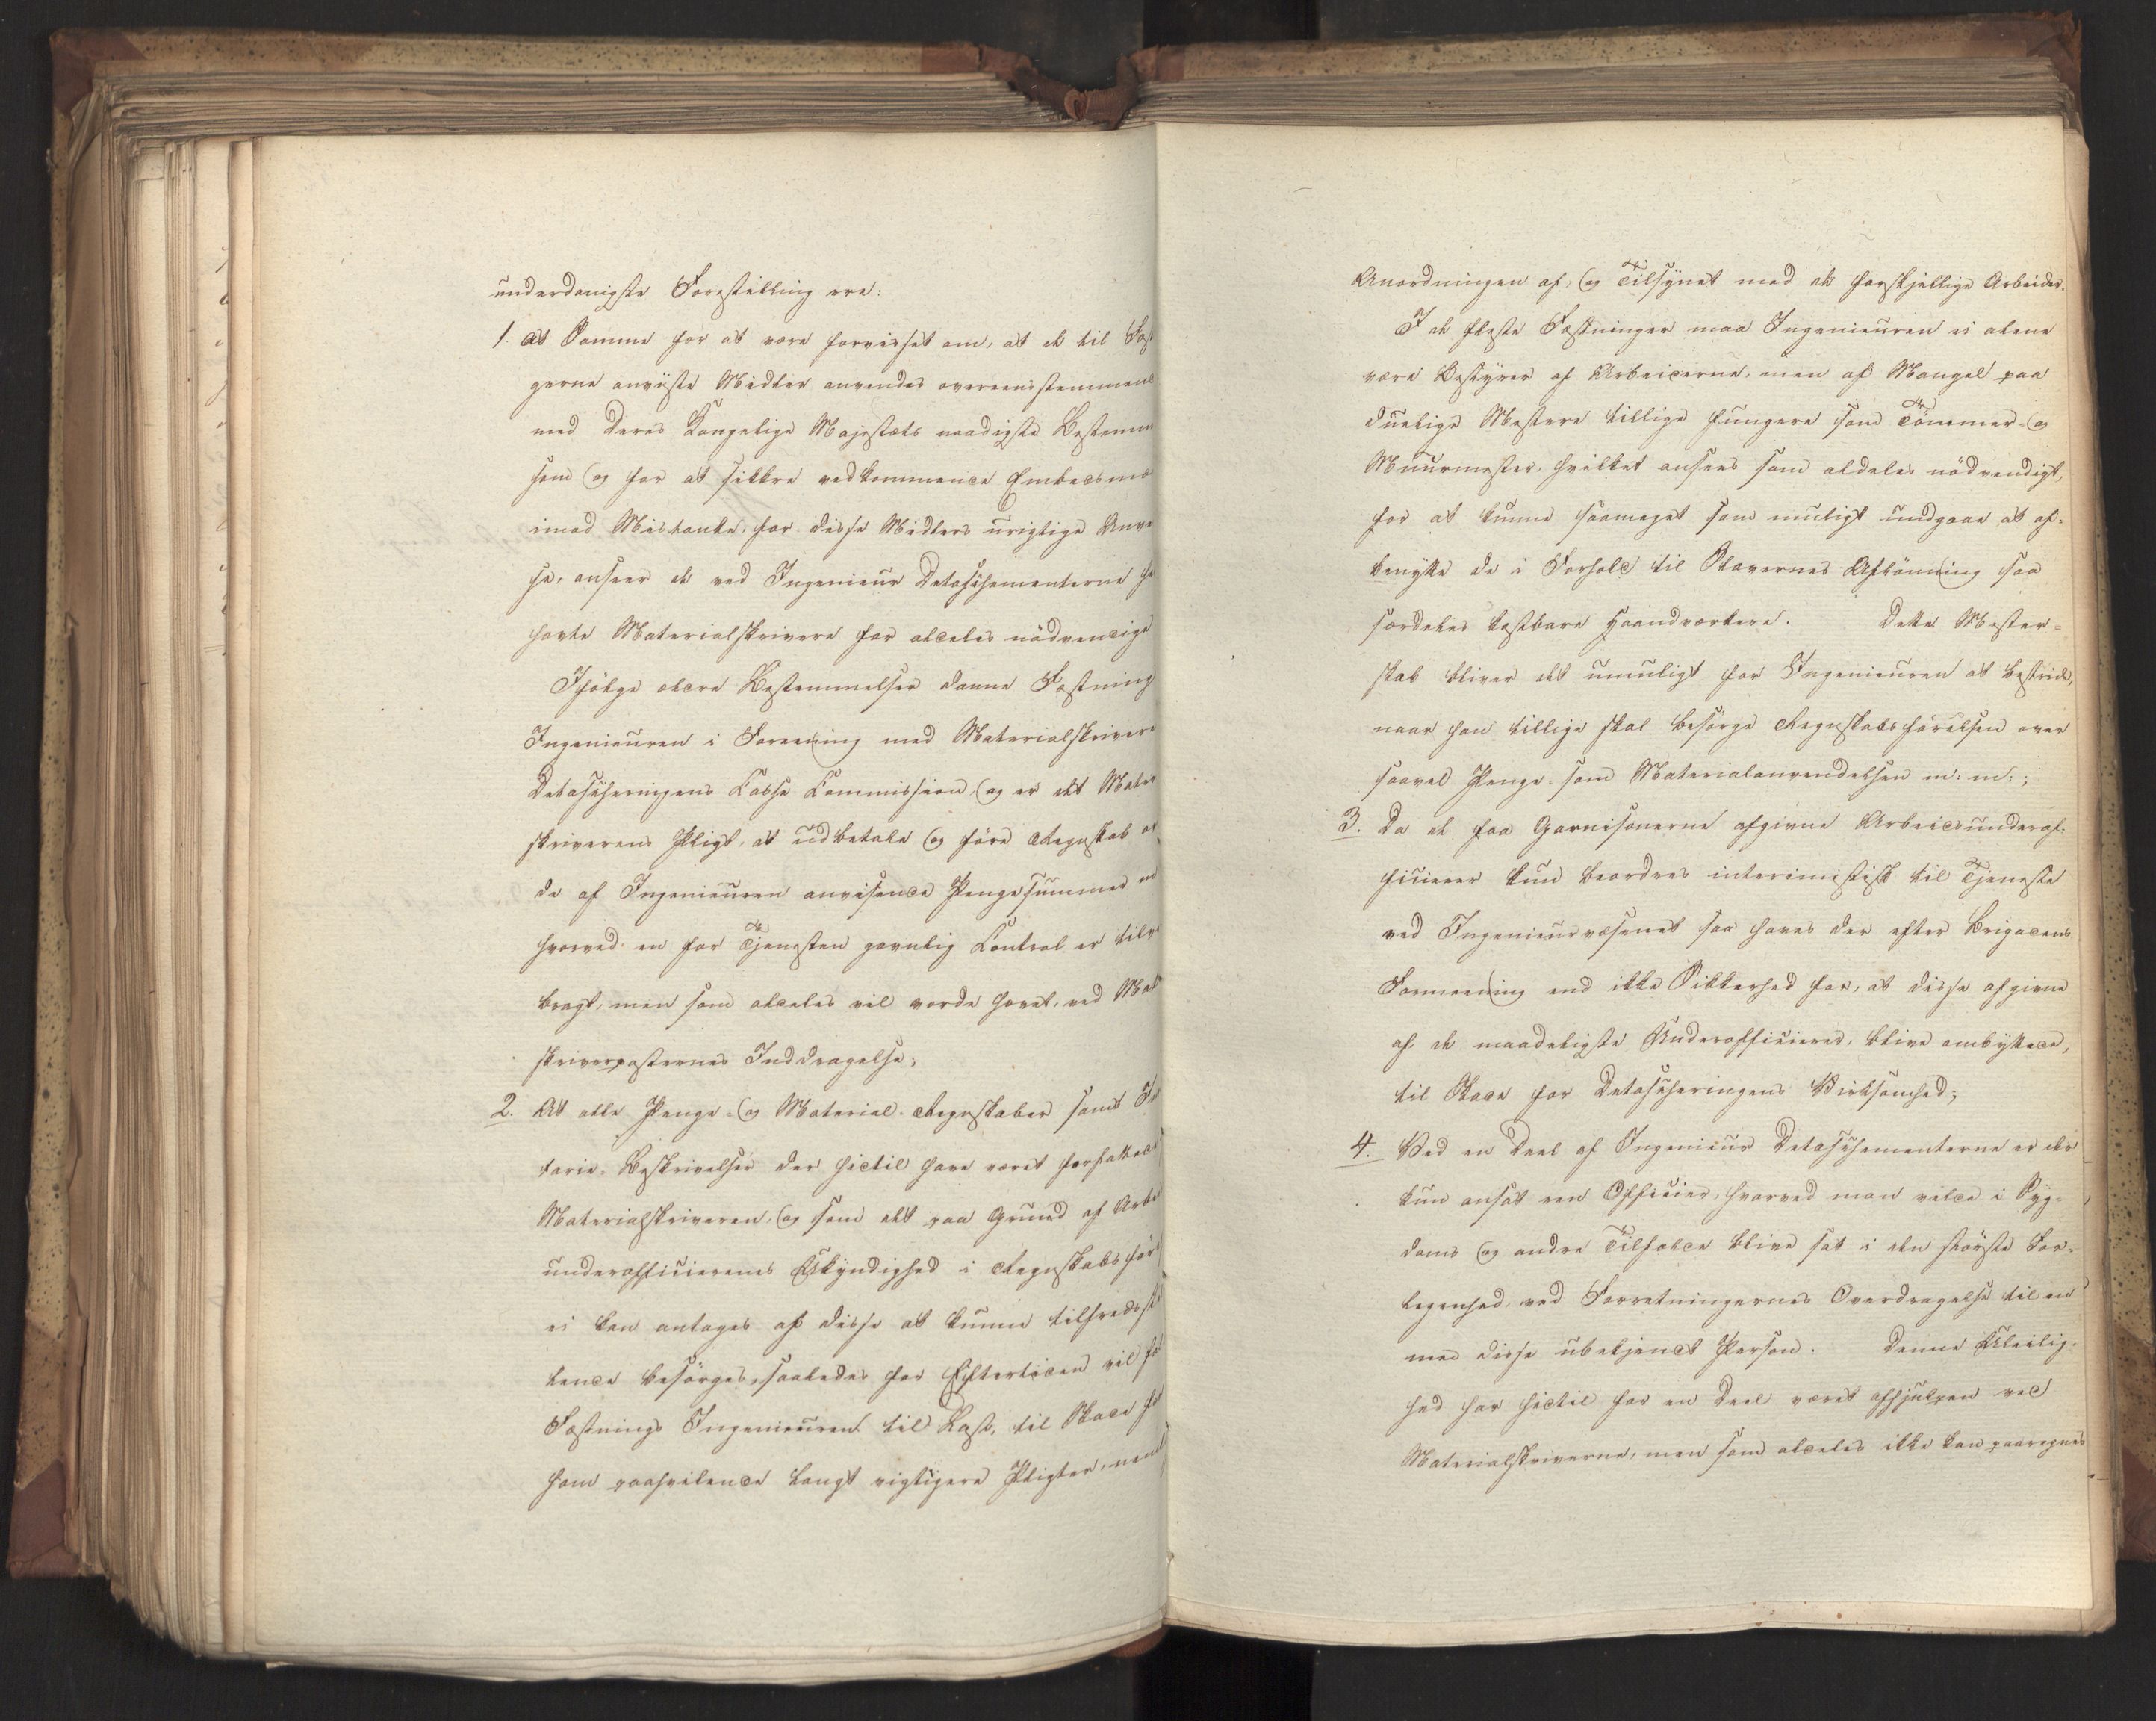 underdanigste Forestilling ere:
1. At Samme for at være forvisset om, at de til Fæst
gerne anviiste Midler anvendes overeensstemmend
med Deres Kongelige Majestæts naadigste Bestemm
som og for at sikkre vedkommende Embedsmæ
imod Mistanke, for disse Midlers urigtige Anve
se, anseer de ved Ingenieur Detaschementerne ha
havte Materialskrivere for aldeles nödvendige
Ifölge ældre Bestemmelser danne Fæstning
Ingenieuren i Forening med Materialskrivere
Detascheringens Casse Commission, og er det Mater
skriverens Pligt, at udbetale og före Regnskab o
de af Ingenieuren anvisende Pengesummer
hvorved en for Tjenesten gavnlig Control er tilve
bragt, men som aldeles vil vorde hævet, ved Mat
skriverposternes Inddragelse;
2. At alle Penge- og Material-Regnskaber samt In
tarie-Beskrivelser der hidtil have været forfattede
Materialskriveren, og som det paa Grund af Arbe
underofficierenes Ukyndighed i Regnskabsför
ei kan antages af disse at kunne tilfredsstil
lende besörges, saaledes for Eftertiden vil fal
Fæstnings Ingenieuren til Last, til Skade for
ham paahvilende langt vigtigere Pligter, neml
Anordningen af, og Tilsynet med de forskjellige Arbeider.
I de fleste Fæstninger maa Ingenieuren ei alene
være Bestyrer af Arbeiderne, men af Mangel paa
duelige Mestere tillige fungere som Tömmer- og
Muurmester, hvilket ansees som aldeles nödvendigt,
for at kunne saameget som muligt undgaae at af-
benytte de i Forhold til Slavernes Aflönning saa
særdeles kostbare Haandværkere. Dette Mester-
skab bliver det umuligt for Ingenieuren at bestride,
naar han tillige skal besörge Regnskabsförelsen over
saavel Penge- som Materialanvendelsen m: m:;
3. Da de fra Garnisonerne afgivne Arbeidsunderof-
ficierer kun beordres interimistisk til Tjeneste
ved Ingenieurvæsenet saa haves der efter Brigadens
Formeening end ikke Sikkerhed for, at disse afgivne
af de maadeligste Underofficierer, blive ombyttede,
til Skade for Detascheringens Virksomhed;
4. Ved en Deel af Ingenieur Detaschementerne er der
kun ansat een Officier, hvorved man vilde i Syg-
doms og andre Tilfælde blive sat i den störste For-
legenhed, ved Forretningernes Overdragelse til en
med disse ubekjendt Person. Denne Uleilig-
hed har hidtil for en Deel været afhjulpen ved
Materialskriverne, men som aldeles ikke kan paaregnes